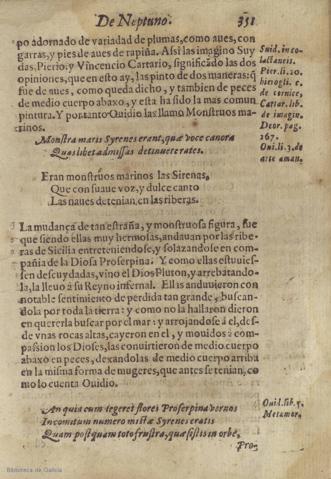 De Neptuno. 351
po adornado de variadad de plumas, como aues, con
garras, y pies de aues de rapiña. Assi las imagino Suy
das, Pierio, y Vincencio Cartario, significado las dos
opiniones, que en esto ay, las pinto de dos maneras: q̃
fue de aues, como queda dicho, y tambien de peces
de medio cuerpo abaxo, y esta ha sido la mas comun
pintura. Y por tanto Ouidio las llamo Monstruos ma
rinos.
Suid. in co-
lactaneis.
Pier. li. 20.
hierogli. c.
de cornice,
Cartar. lib.
de imagin.
Deor. pag.
167.
Oui. li. 3. de
arte aman.
Monstra maris Syrenes erant, quæ voce canora
Quaslibet admissas detinuere rates.
Eran monstruos marinos las Sirenas,
Que con suaue voz, y dulce canto
Las naues detenian, en las riberas.
La mudança de tan estraña, y monstruosa figura, fue
que siendo ellas muy hermosas, andauan por las ribe-
ras de Sicilia entreteniendose, y solazandose en com-
pañia de la Diosa Proserpina. Y como ellas estuuies-
sen descuydadas, vino el Dios Pluton, y arrebatando-
la, la lleuo à su Reyno infernal. Ellas anduuieron con
notable sentimiento de perdida tan grande, buscan-
dola por toda la tierra: y como no la hallaron dieron
en quererla buscar por el mar: y arrojandose à el, des-
de vnas rocas altas, cayeron en el, y mouidos à com-
passion los Dioses, las conuirtieron de medio cuerpo
abaxo en peces, dexandolas de medio cuerpo arriba
en la misma forma de mugeres, que antes se tenian, co
mo lo cuenta Ouidio.
Ouid. lib. 5.
Metamor.
An quia cum legeret flores Proserpina vernos
In comitum numero mistæ Syrenes eratis
Quam postquam toto frustra, quæsistis in orbe,
Pro-
Biblioteca de Galicia